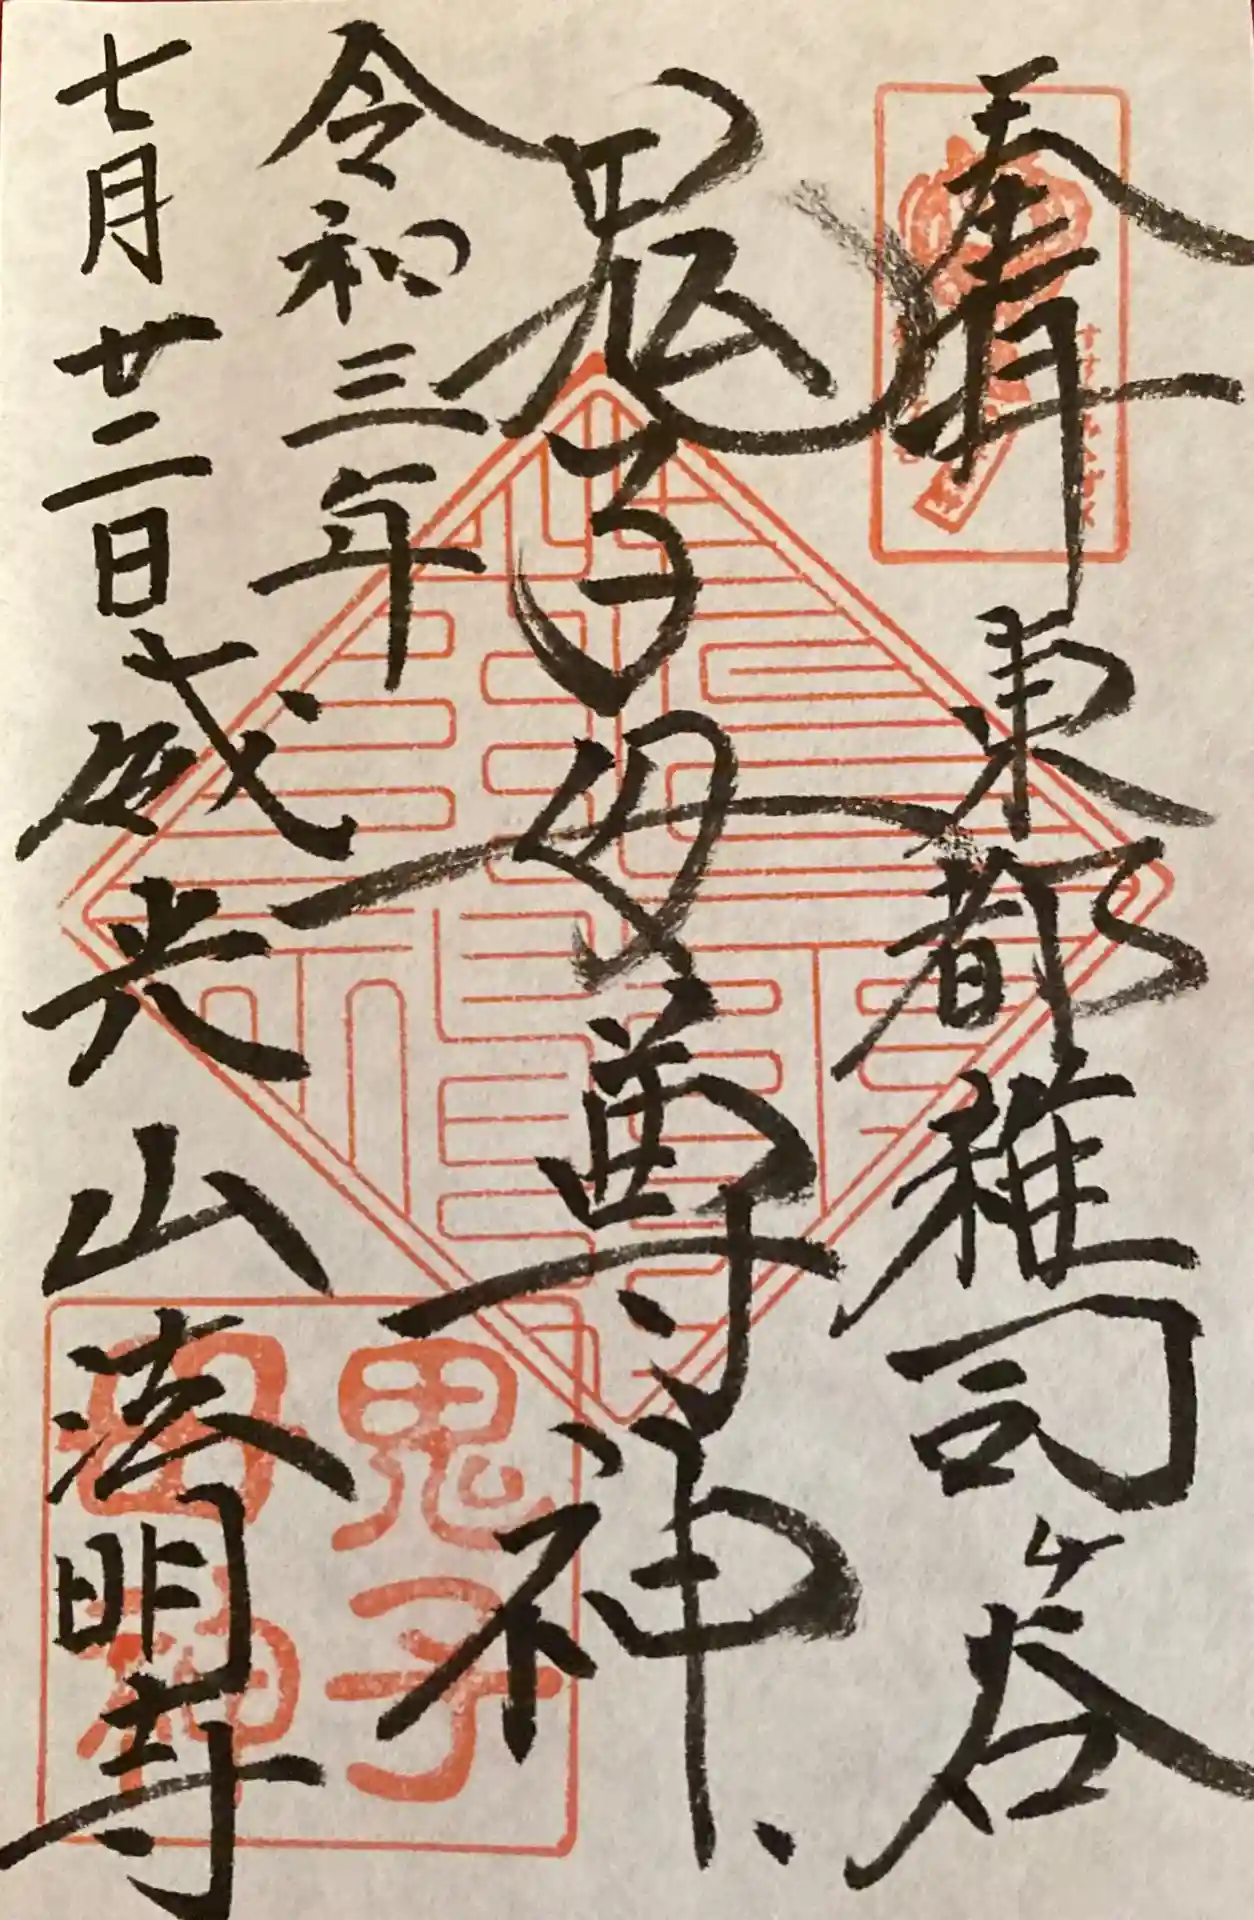 奉拝 東都雑司ヶ谷
鬼子母尊神
令和三年
七月廿二日 威光山 法明寺
鬼子
母神